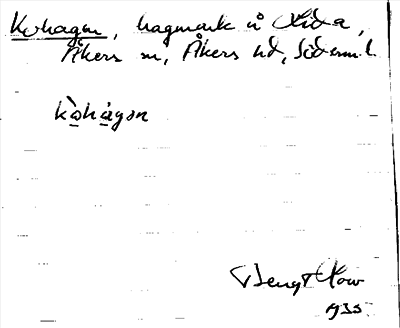 Kohagen, hagmark å Lida,
Åkers sn, Åkers hd, Söderml.
kòhàgən
Bengt
1935